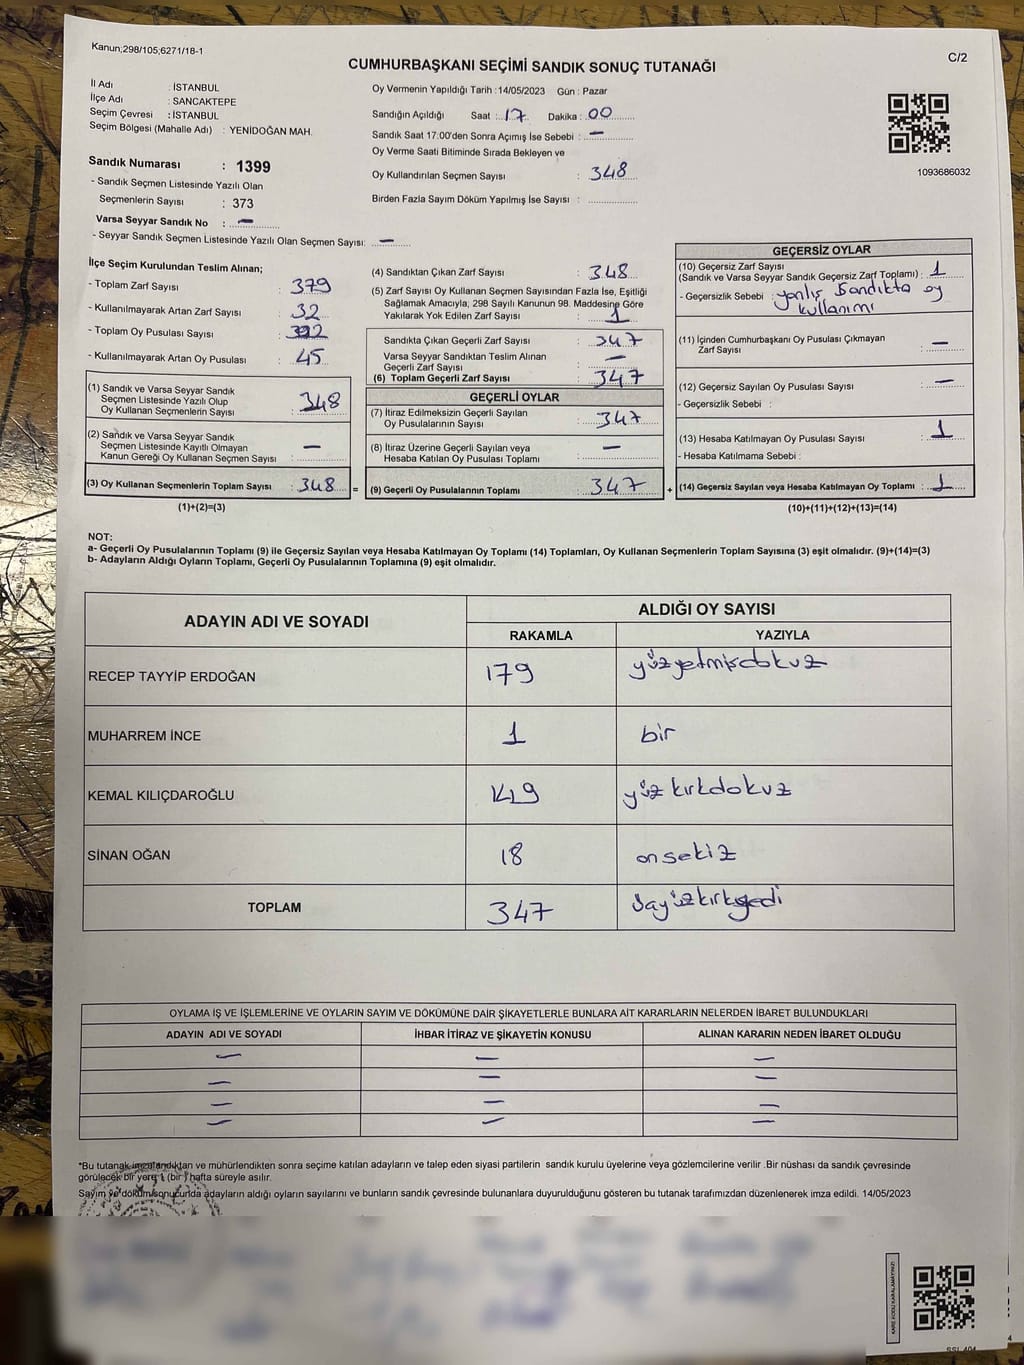 Kanun;298/105;6271/18-1
C/2
CUMHURBAŞKANI SEÇİMİ SANDIK SONUÇ TUTANAĞI
İl Adı : İSTANBUL
İlçe Adı : SANCAKTEPE
Seçim Çevresi : İSTANBUL
Seçim Bölgesi (Mahalle Adı) : YENİDOĞAN MAH.
Sandık Numarası : 1399
- Sandık Seçmen Listesinde Yazılı Olan
Seçmenlerin Sayısı : 373
Varsa Seyyar Sandık No : -
- Seyyar Sandık Seçmen Listesinde Yazılı Olan Seçmen Sayısı: -
Oy Vermenin Yapıldığı Tarih :14/05/2023 Gün : Pazar
Sandığın Açıldığı Saat : 17 Dakika : 00
Sandık Saat 17:00'den Sonra Açımış İse Sebebi : -
Oy Verme Saati Bitiminde Sırada Bekleyen ve
Oy Kullandırılan Seçmen Sayısı : 348
Birden Fazla Sayım Döküm Yapılmış İse Sayısı :
1093686032
İlçe Seçim Kurulundan Teslim Alınan;
- Toplam Zarf Sayısı : 379
- Kullanılmayarak Artan Zarf Sayısı : 32
- Toplam Oy Pusulası Sayısı :
- Kullanılmayarak Artan Oy Pusulası : 45
(1) Sandık ve Varsa Seyyar Sandık
Seçmen Listesinde Yazılı Olup
Oy Kullanan Seçmenlerin Sayısı : 348
(2) Sandık ve Varsa Seyyar Sandık
Seçmen Listesinde Kayıtlı Olmayan
Kanun Gereği Oy Kullanan Seçmen Sayısı : -
(3) Oy Kullanan Seçmenlerin Toplam Sayısı : 348 =
(1)+(2)=(3)
(4) Sandıktan Çıkan Zarf Sayısı : 348
(5) Zarf Sayısı Oy Kullanan Seçmen Sayısından Fazla İse, Eşitliği
Sağlamak Amacıyla, 298 Sayılı Kanunun 98. Maddesine Göre
Yakılarak Yok Edilen Zarf Sayısı : 1
Sandıkta Çıkan Geçerli Zarf Sayısı : 347
Varsa Seyyar Sandıktan Teslim Alınan
Geçerli Zarf Sayısı : -
(6) Toplam Geçerli Zarf Sayısı : 347
GEÇERLİ OYLAR
(7) İtiraz Edilmeksizin Geçerli Sayılan
Oy Pusulalarının Sayısı : 347
(8) İtiraz Üzerine Geçerli Sayılan veya
Hesaba Katılan Oy Pusulası Toplamı : -
(9) Geçerli Oy Pusulalarının Toplamı : 347 +
GEÇERSİZ OYLAR
(10) Geçersiz Zarf Sayısı
(Sandık ve Varsa Seyyar Sandık Geçersiz Zarf Toplamı) : 1
- Geçersizlik Sebebi : yanlış Sandıkta oy
kullanımı
(11) İçinden Cumhurbaşkanı Oy Pusulası Çıkmayan
Zarf Sayısı : -
(12) Geçersiz Sayılan Oy Pusulası Sayısı : -
- Geçersizlik Sebebi :
(13) Hesaba Katılmayan Oy Pusulası Sayısı : 1
- Hesaba Katılmama Sebebi :
(14) Geçersiz Sayılan veya Hesaba Katılmayan Oy Toplamı : 1
(10)+(11)+(12)+(13)=(14)
NOT:
a- Geçerli Oy Pusulalarının Toplamı (9) ile Geçersiz Sayılan veya Hesaba Katılmayan Oy Toplamı (14) Toplamları, Oy Kullanan Seçmenlerin Toplam Sayısına (3) eşit olmalıdır. (9)+(14)=(3)
b- Adayların Aldığı Oyların Toplamı, Geçerli Oy Pusulalarının Toplamına (9) eşit olmalıdır.
ADAYIN ADI VE SOYADI
ALDIĞI OY SAYISI
RAKAMLA YAZIYLA
RECEP TAYYİP ERDOĞAN 179 yüzyetmişdokuz
MUHARREM İNCE 1 bir
KEMAL KILIÇDAROĞLU 149 yüz kırkdokuz
SİNAN OĞAN 18 onsekiz
TOPLAM 347
OYLAMA İŞ VE İŞLEMLERİNE VE OYLARIN SAYIM VE DÖKÜMÜNE DAİR ŞİKAYETLERLE BUNLARA AİT KARARLARIN NELERDEN İBARET BULUNDUKLARI
ADAYIN ADI VE SOYADI İHBAR İTİRAZ VE ŞİKAYETİN KONUSU ALINAN KARARIN NEDEN İBARET OLDUĞU
- - -
- - -
- - -
- - -
*Bu tutanak imzalandıktan ve mühürlendikten sonra seçime katılan adayların ve talep eden siyasi partilerin sandık kurulu üyelerine veya gözlemcilerine verilir .Bir nüshası da sandık çevresinde
görülecek bir yere 1 (bir ) hafta süreyle asılır.
Sayım ve döküm sonucunda adayların aldığı oyların sayılarını ve bunların sandık çevresinde bulunanlara duyurulduğunu gösteren bu tutanak tarafımızdan düzenlenerek imza edildi. 14/05/2023